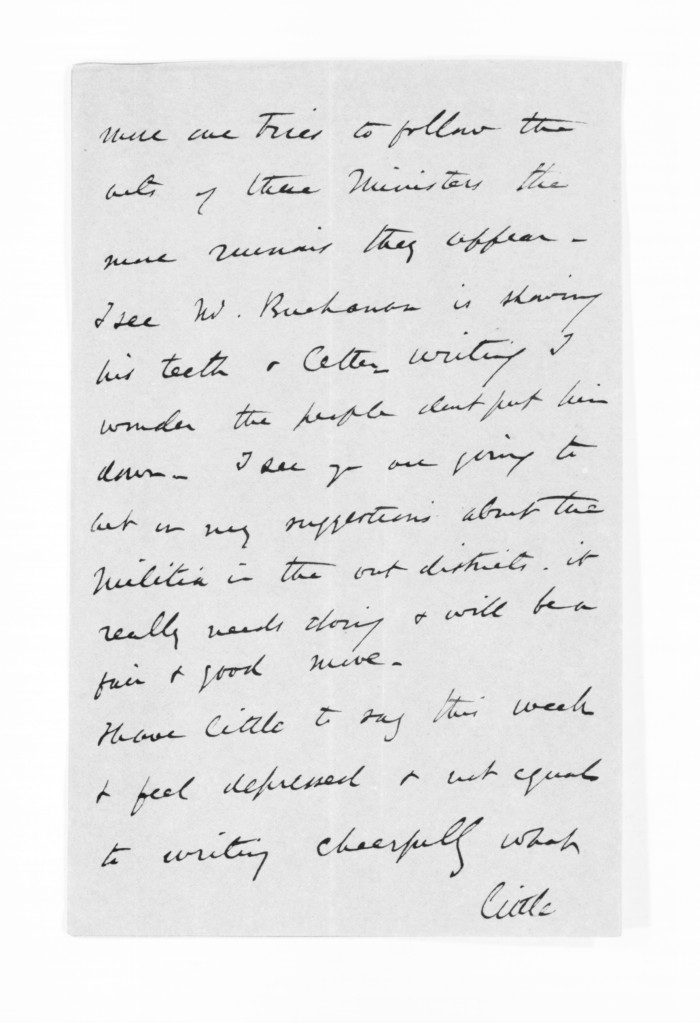 more one tries to follow the
acts of these Ministers the
more ruinous they appear -
I see W. Buchanan is showing
his teeth & letter writing I
wonder the people dont put him
down - I see you are going to
act on my suggestions about the
Militia in the out districts. it
really needs doing & will be a
fair & good move -
I have little to say this week
& feel depressed & not equal
to writing cheerfully what
little